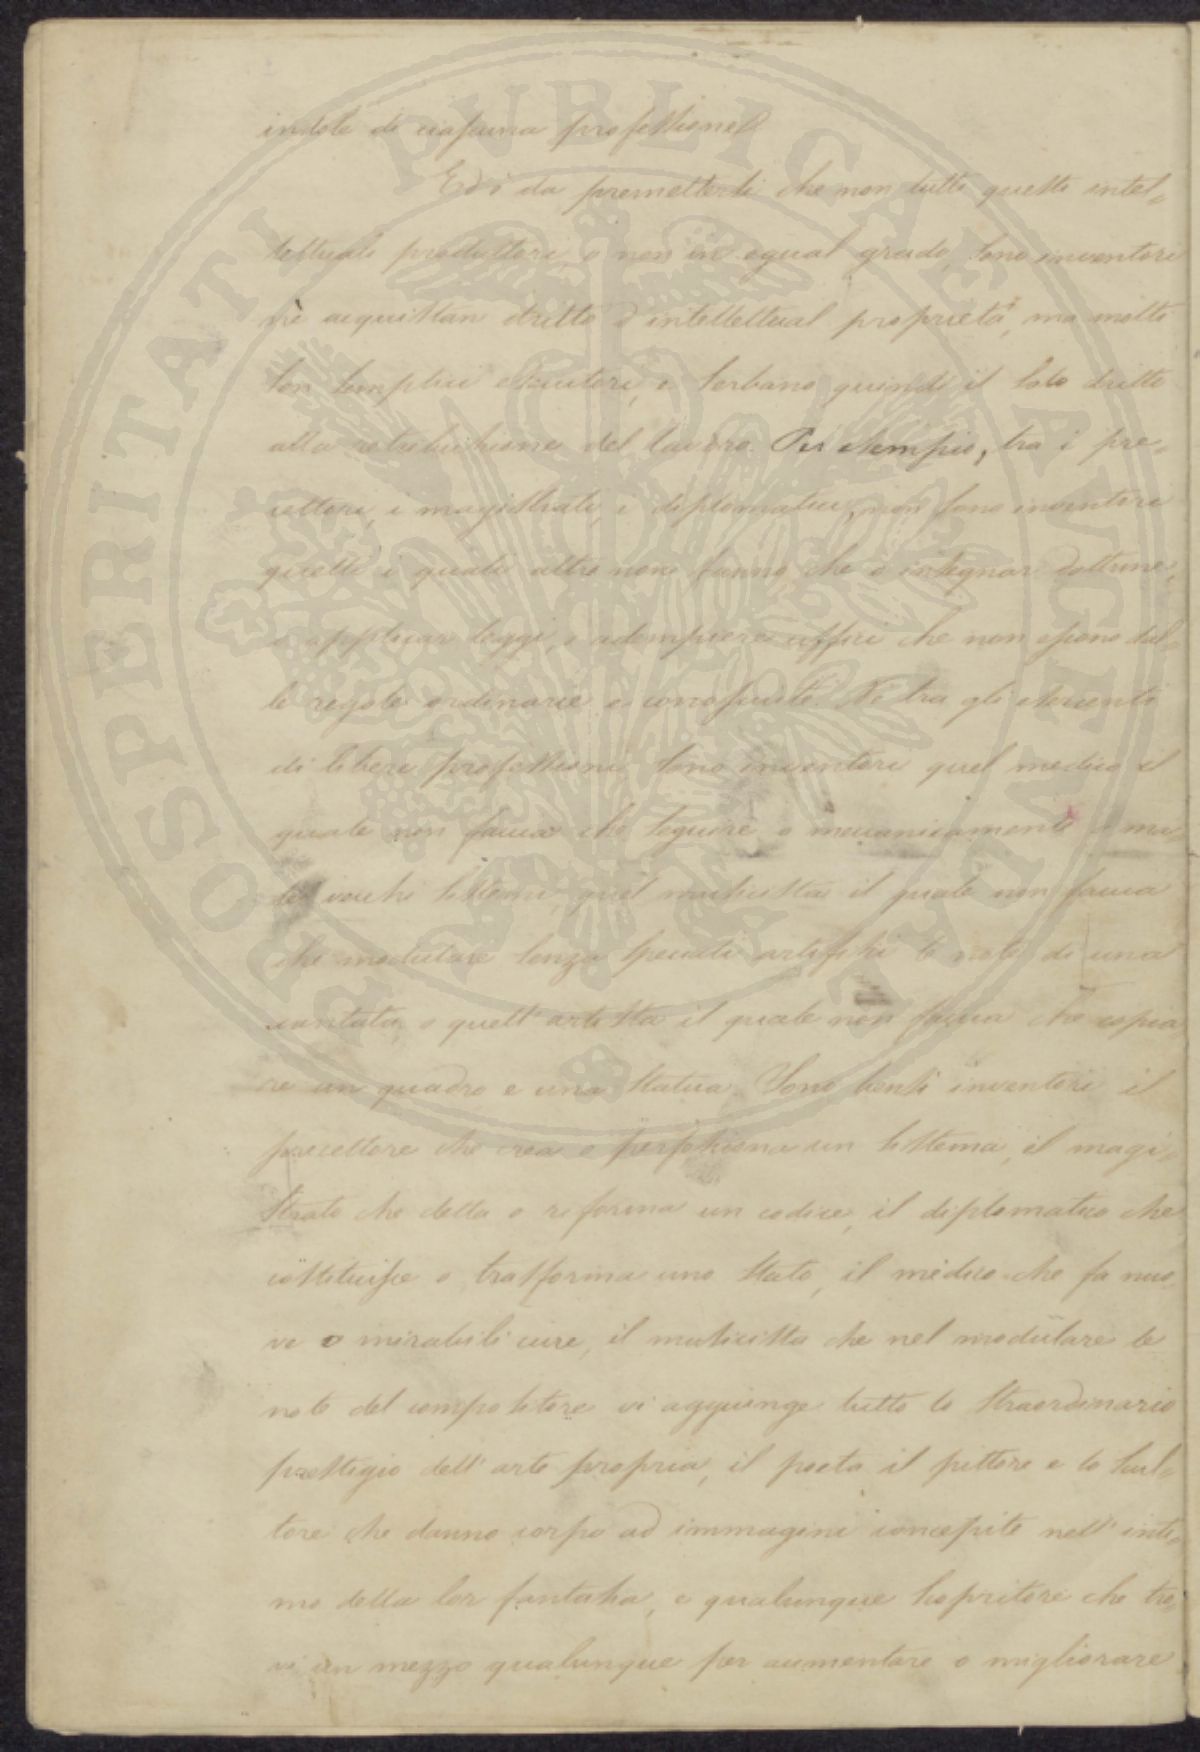 indole di ciascuna professione.
Ed è da premettersi che non tutti questi intel-
lettuali produttori, o non in egual grado, sono inventori
nè acquistan dritto d'intellettual proprietà, ma molti
son semplici esecutori, e serbano quindi il solo dritto
alla retribuzione del lavoro. Per esempio, tra i pre-
cettori, i magistrati, i diplomatici, non sono inventori
quelli i quali altro non fanno che o insegnar dottrine,
o applicar leggi, o adempiere uffici che non escono dal-
le regole ordinarie e conosciute. Nè tra gli esercenti
di libere professioni sono inventori quel medico il
quale non faccia che seguire o meccanicamente o ma-
le vecchi sistemi, quel musicista il quale non faccia
che modulare senza speciali artifizi le note di una
cantata, o quell'artista il quale non faccia che copia
re un quadro e una statua. Sono bensì inventori il
precettore che crea o perfeziona un sistema, il magi-
strato che detta o riforma un codice, il diplomatico che
costituisce o trasforma uno Stato, il medico che fa nuo-
ve o mirabili cure, il musicista che nel modulare le
note del compositore vi aggiunge tutto lo straordinario
prestigio dell'arte propria, il poeta il pittore e lo scul-
tore che danno corpo ad immagini concepite nell'inti-
mo della lor fantasia, e qualunque scopritore che tro-
vi un mezzo qualunque per aumentare o migliorare
PROSPERITATI PUBLICAE AUGENDAE